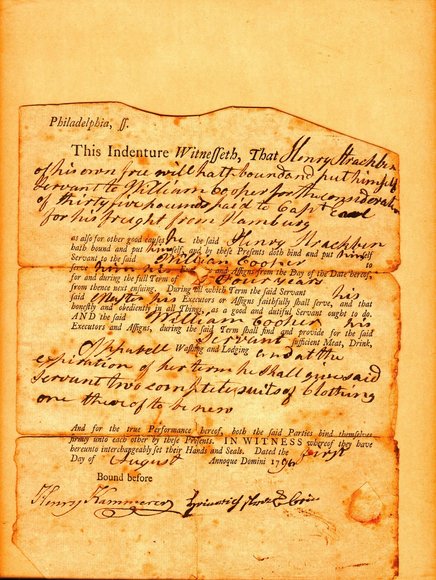 Philadelphia, ſſ.
This Indenture Witneſſeth, That Henry Strackbin
of his own free will hath bound and put himself
Servant to William Cooper for the consideration
of thirty five pounds paid to Capt
for his freight from Hamburg
as also for other good cauſes he the said Henry Strackbin
hath bound and put himself, and by theſe Presents doth bind and put himself
Servant to the said William Cooper
serve him his and Assigns from the Day of the Date hereof,
for and during the full Term of Four years
from thence next ensuing. During all which Term the said Servant his
said Master his Executors or Assigns faithfully shall serve, and that
honestly and obediently in all Things, as a good and dutiful Servant ought to do.
AND the said William Cooper his
Executors and Assigns, during the said Term shall find and provide for the said
Servant sufficient Meat, Drink,
Apparell Washing and Lodging and at the
expiration of her term he shall give said
Servant two complete suits of Clothing
one thereof to be new
And for the true Performance hereof, both the said Parties bind themselves
firmly unto each other by theſe Presents. IN WITNESS whereof they have
hereunto interchangeably set their Hands and Seals. Dated the first
Day of August Annoque Domini 179
Bound before
Henry Kammerer